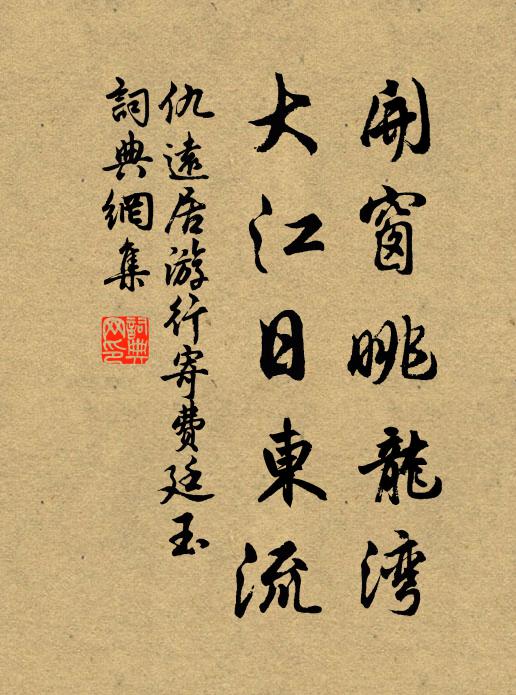 開窗眺龍湾
大江日東流
仇遠居游行寄費廷玉
詞典網集
詞典网印